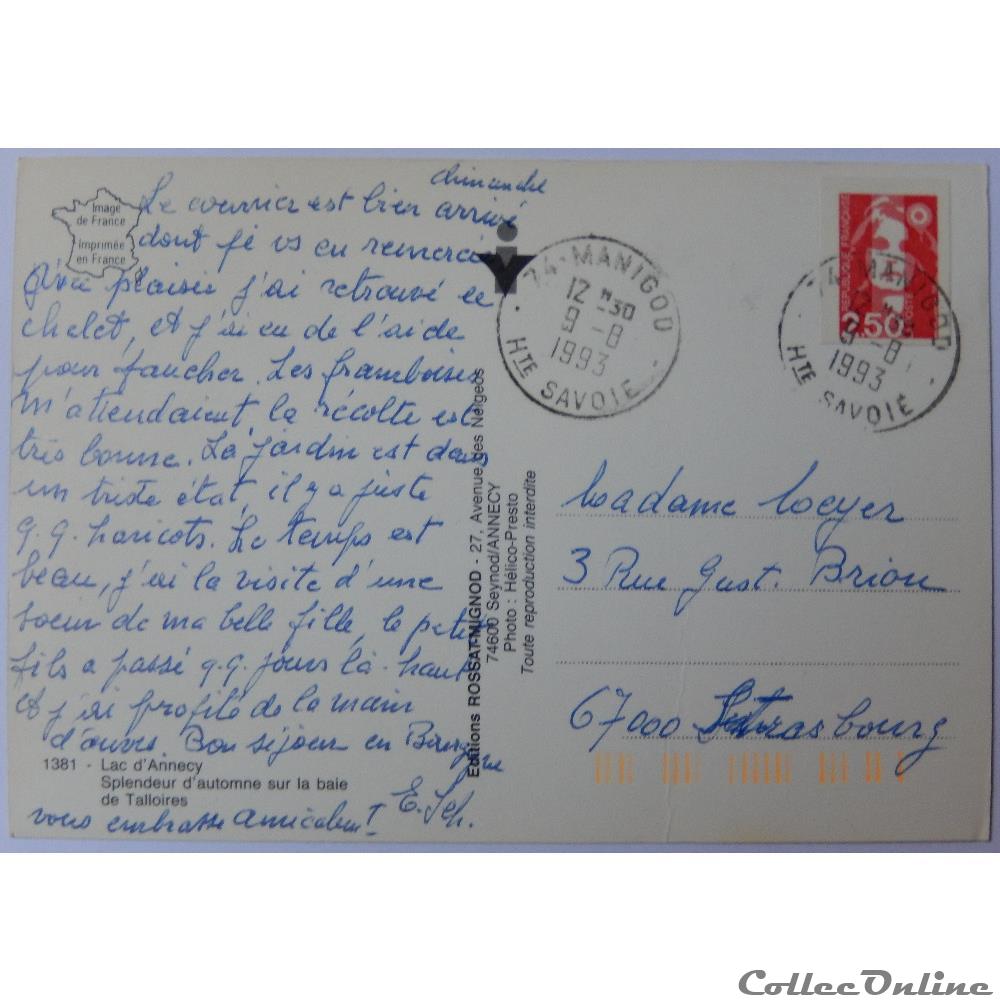 dimanche
Le courrier est bien arrivé
dont je vs en remercie
Avec plaisir j'ai retrouvé ce
chalet, et j'ai eu de l'aide
pour faucher. Les framboises
m'attendaient, la récolte est
très bonne. Le jardin est dans
un triste état, il y a juste
q.q. haricots. Le temps est
beau, j'ai la visite d'une
soeur de ma belle fille, le petit
fils a passé q.q. jours là-haut
et j'ai profité de la main
d'œuvre. Bon séjour en
vous embrasse amicalemt
E. Sch.
Image
de France
Imprimée
en France
1381 - Lac d'Annecy
Splendeur d'automne sur la baie
de Talloires
Editions ROSSAT-MIGNOD - 27, Avenue des Neigeos
74600 Seynod/ANNECY
Photo : Hélico-Presto
Toute reproduction interdite
74-MANIGOD
12 H30
9 -8
1993
HTE SAVOIE
REPUBLIQUE FRANÇAISE
LA POSTE
2,50
74-MANIGOD
12 H30
9 -8
1993
HTE SAVOIE
Madame Loeyer
3 Rue Gust. Brion
67000 Strasbourg
CollecOnline